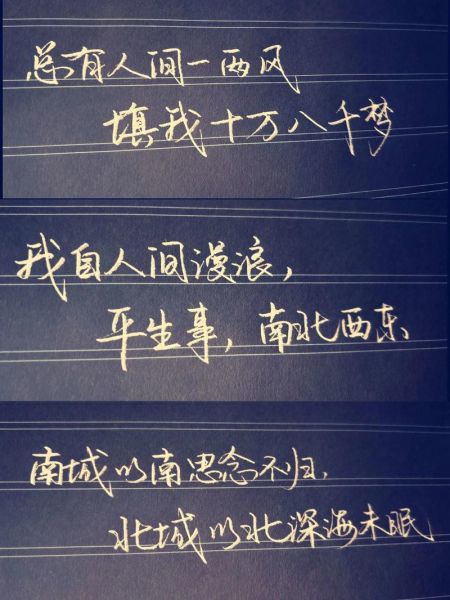 总有人间一两风
填我十万八千梦
我自人间漫浪，
平生事，南北西东
南城以南思念不归，
北城以北深海未眠